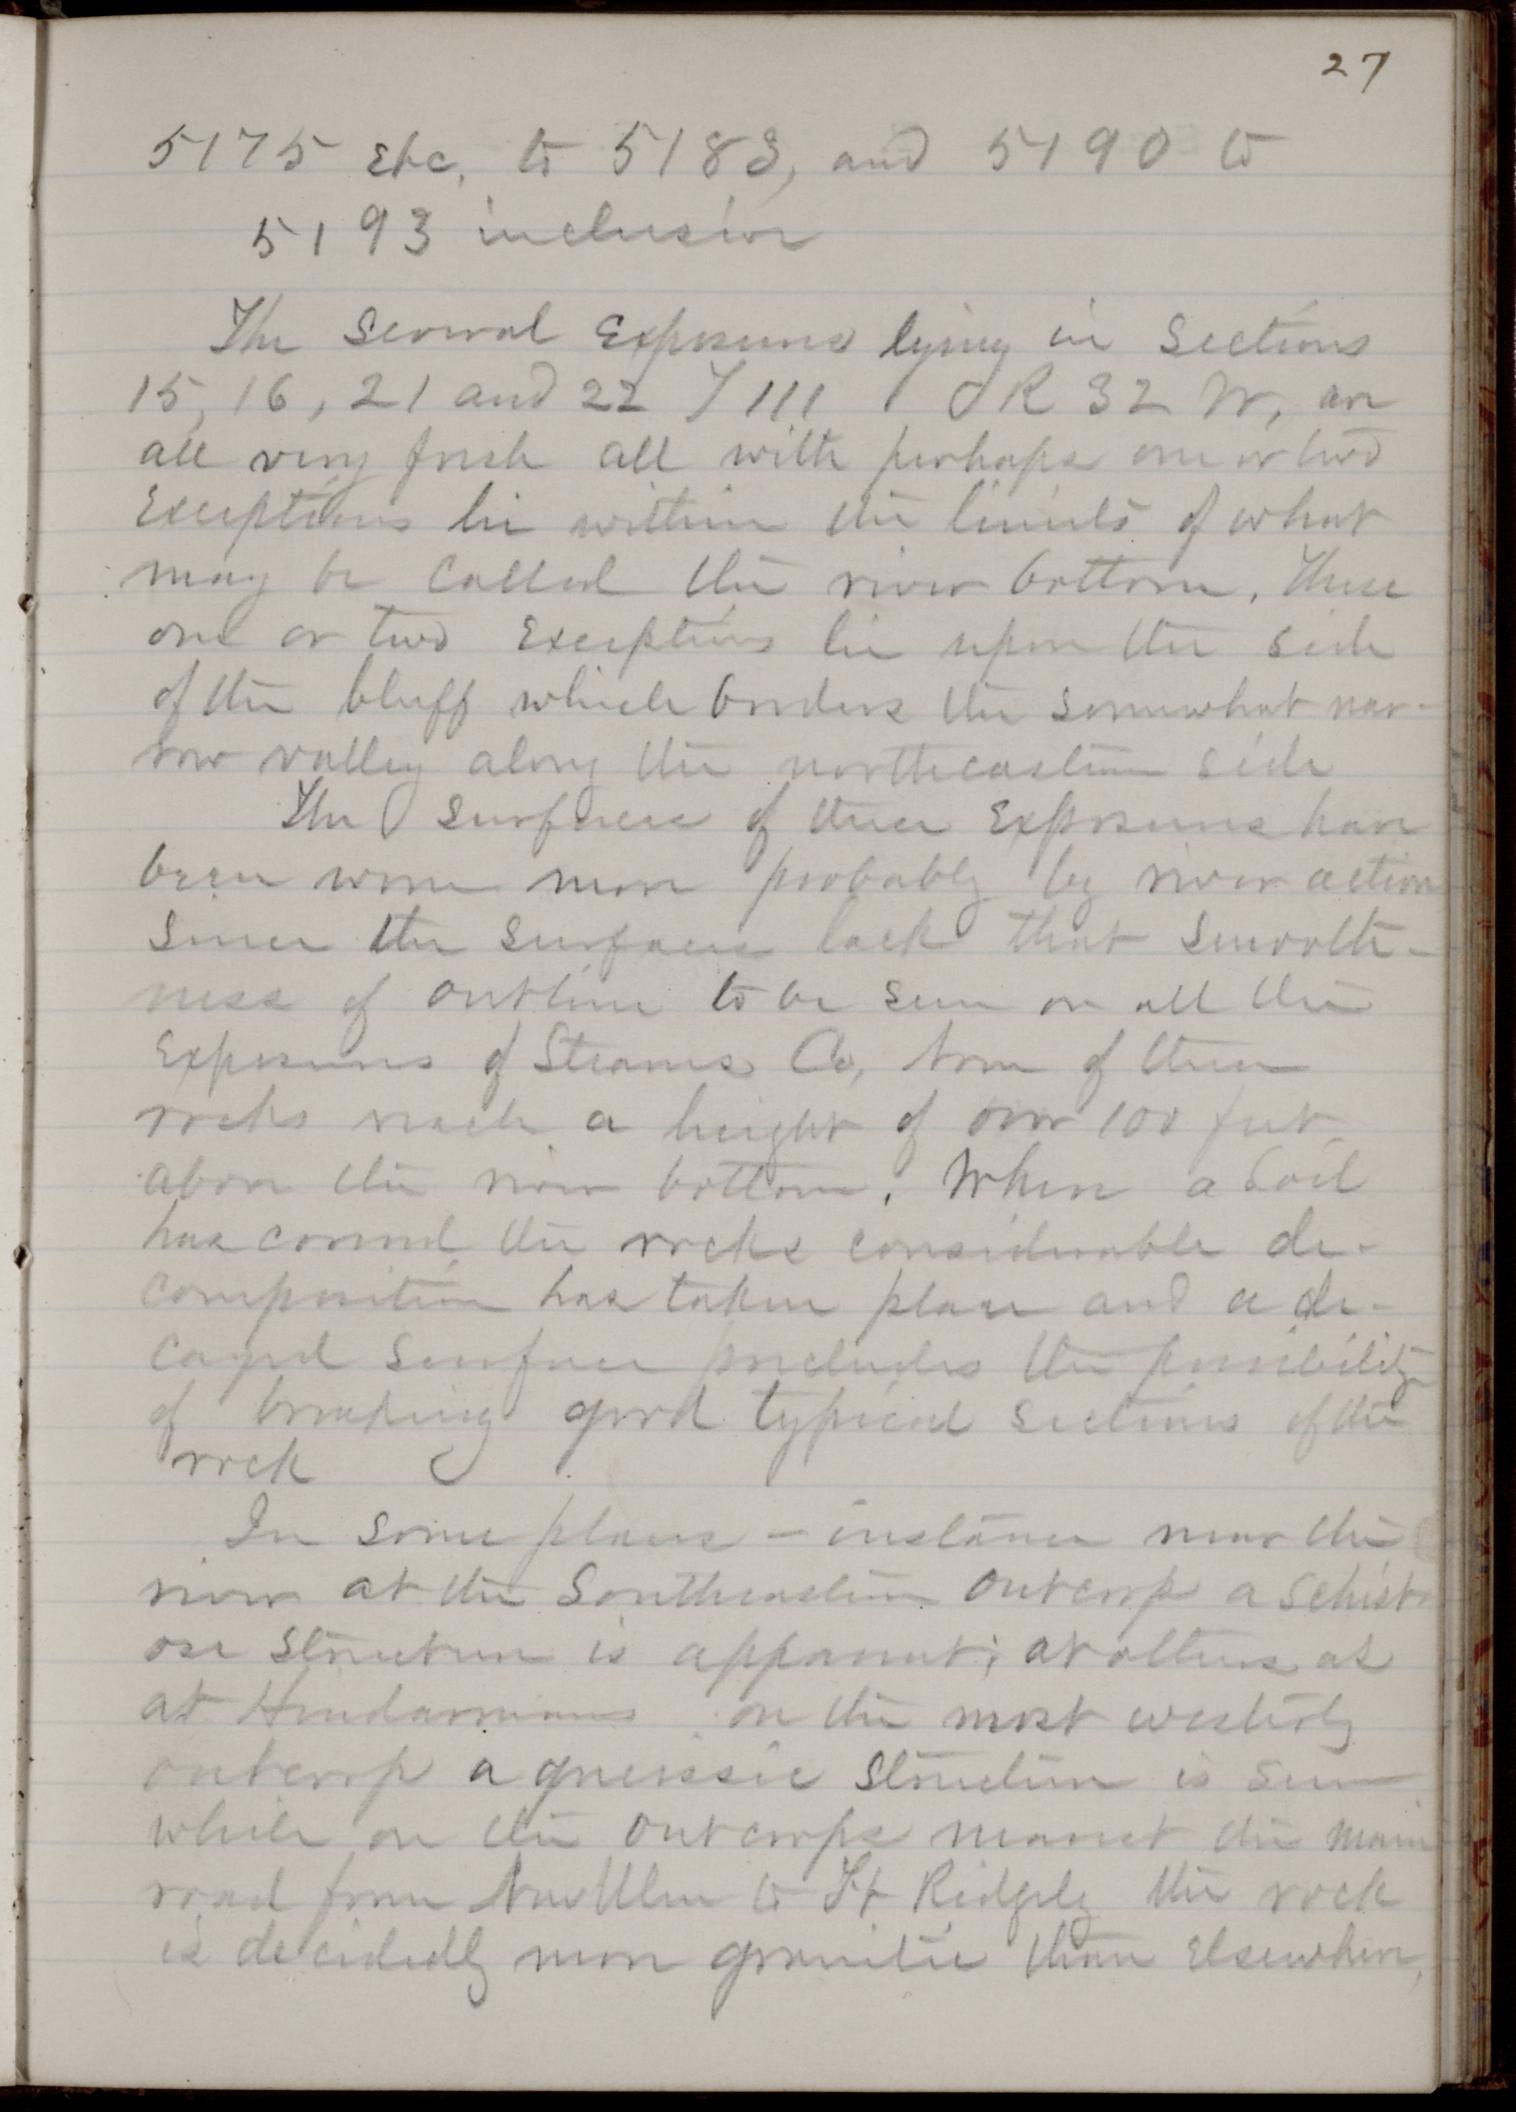 27
5175 etc. to 5183, and 5190 to
5193 inclusive
The several exposures lying in Sections
15, 16, 21 and 22 T 111 R 32 W, are
all very fresh all with perhaps one or two
exceptions lie within the limits of what
may be called the river bottom. These
one or two exceptions lie upon the side
of the bluff which borders the somewhat nar-
row valley along the northeastern side
The surfaces of these exposures have
been worn more probably by river action
since the surfaces lack that smooth-
ness of outline to be seen on all the
exposures of Stearns Co, None of these
rocks reach a height of over 100 feet
above the river bottom. Where a soil
has covered the rocks considerable de-
composition has taken place and a de-
cayed surface precludes the possibility
of breaking good typical sections of the
rock
In some places - instance near the
river at the Southeastern outcrop a schist
ose structure is apparent; at others as
at on the most westerly
outcrop a gneissic structure is seen
while on the outcrops nearest the main
road from New Ulm to Ft Ridgely the rock
is decidedly more granitic than elsewhere,